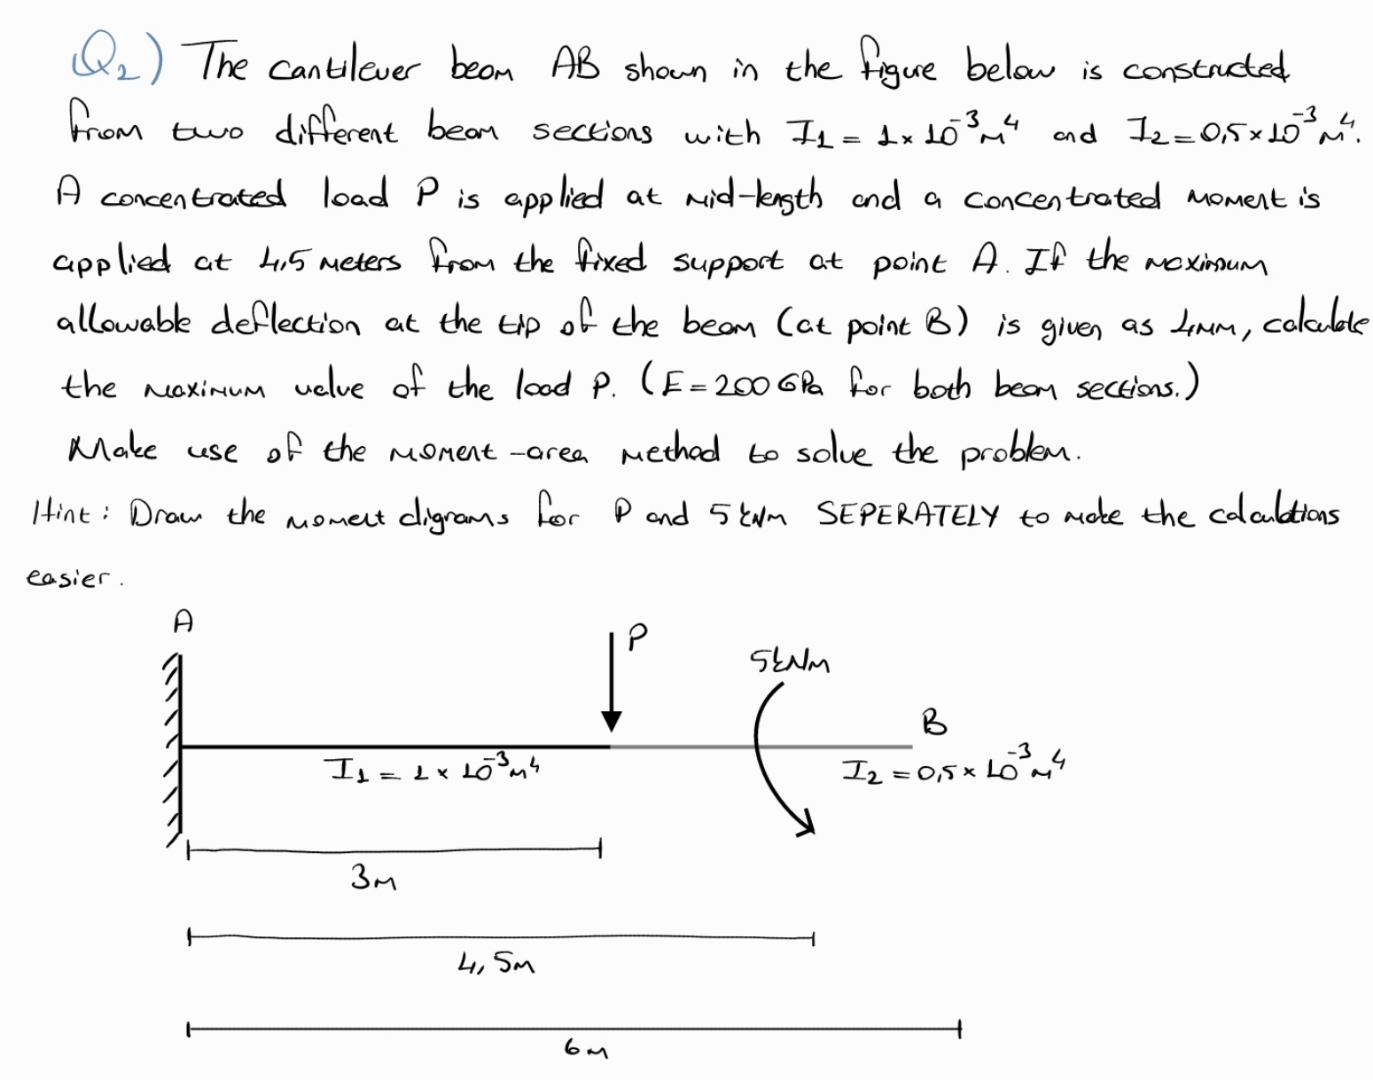 Q2) The cantilever beam AB shown in the figure below is constructed
from two different beam sections with I₁ = 1×10⁻³m⁴ and I₂=0,5×10⁻³m⁴.
A concentrated load P is applied at mid-length and a concentrated moment is
applied at 4,5 meters from the fixed support at point A. If the maximum
allowable deflection at the tip of the beam (at point B) is given as 4mm, calculate
the maximum value of the load P. (E=200GPa for both beam sections.)
Make use of the moment-area method to solve the problem.
Hint: Draw the moment digrams for P and 5kNm SEPERATELY to make the calculations
easier.
A
P
5kNm
B
I₁ = 1×10⁻³m⁴
I₂=0,5×10⁻³m⁴
3m
4,5m
6m